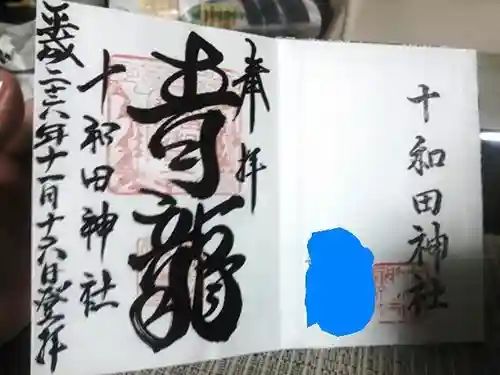 十和田神社
奉拝
青龍
十和田神社
平成二十六年十一月十六日登拝